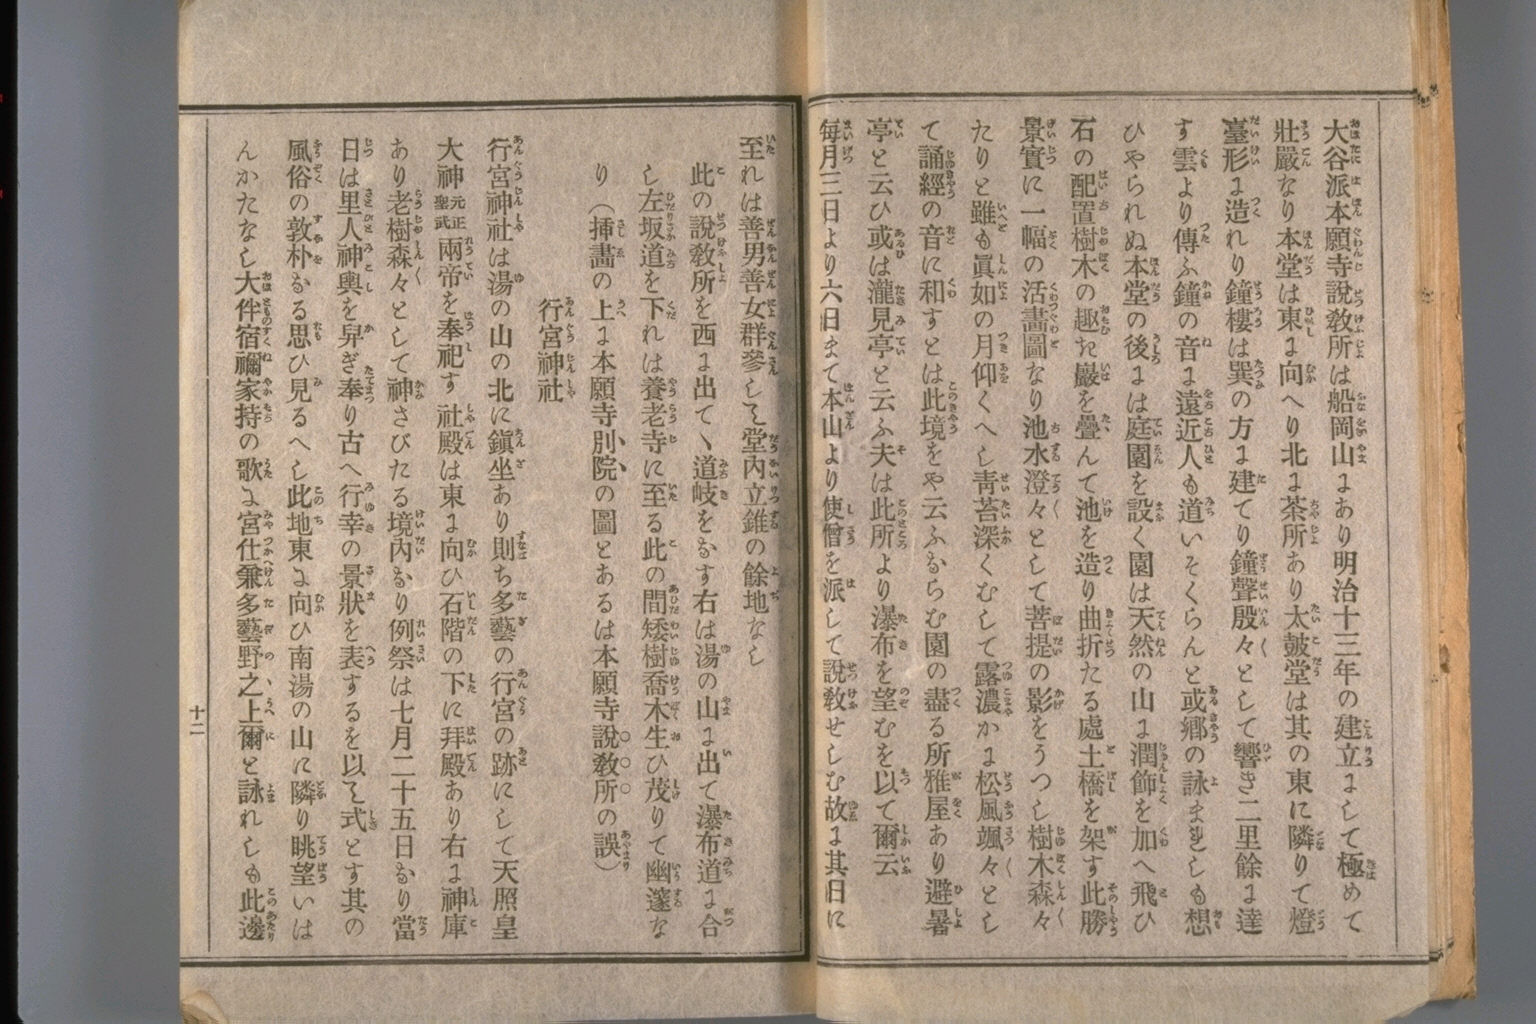 大谷派本願寺說敎所は船岡山にあり明治十三年の建立にして極めて
壯嚴なり本堂は東に向へり北に茶所あり太皷堂は其の東に隣りて燈
臺形に造れり鐘樓は巽の方に建てり鐘聲殷々として響き二里餘に達
す雲より傳ふ鐘の音に遠近人も道いそくらんと或鄕の詠ましも想
ひやられぬ本堂の後には庭園を設く園は天然の山に潤飾を加へ飛ひ
石の配置樹木の趣き巖を疊んて池を造り曲折たる處土橋を架す此勝
景實に一幅の活畵圖なり池水澄々として菩提の影をうつし樹木森々
たりと雖も眞如の月仰くへし靑苔深くむして露濃かに松風颯々とし
て誦經の音に和すとは此境をや云ふならむ園の盡る所雅屋あり避暑
亭と云ひ或は瀧見亭と云ふ夫は此所より瀑布を望むを以て爾云
每月三日より六日まて本山より使僧を派して說敎せしむ故に其日に
至れは善男善女群參して堂內立錐の餘地なし
此の說敎所を西に出てヽ道岐をなす右は湯の山に出て瀑布道に合
し左坂道を下れは養老寺に至る此の間矮樹喬木生ひ茂りて幽邃な
り（挿畵の上に本願寺別院の圖とあるは本願寺說敎所の誤）
行宮神社
行宮神社は湯の山の北に鎭坐あり則ち多藝の行宮の跡にして天照皇
大神元正聖武兩帝を奉祀す社殿は東に向ひ石階の下に拜殿あり右に神庫
あり老樹森々として神さびたる境內なり例祭は七月二十五日なり當
日は里人神輿を舁ぎ奉り古へ行幸の景狀を表するを以て式とす其の
風俗の敦朴なる思ひ見るへし此地東に向ひ南湯の山に隣り眺望いは
んかたなし大伴宿禰家持の歌に宮仕兼多藝野之上爾と詠れしも此邊
十二